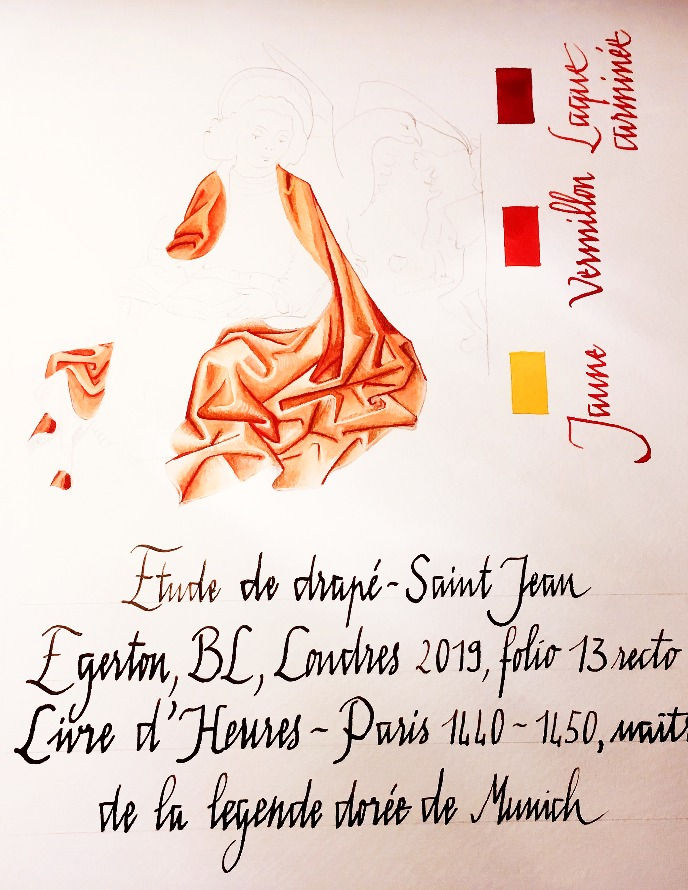 Laque
carminée
Vermillon
Jaune
Etude de drapé - Saint Jean
Egerton, BL, Londres 2019, folio 13 recto
Livre d'Heures - Paris 1440 - 1450, maîtr
de la legende dorée de Munich